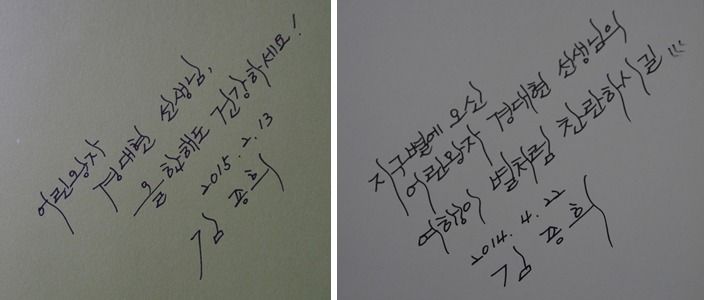 어린왕자
경대현 선생님,
올 한해도 건강하세요!
2015. 2. 13
김종희
지구별에 오신
어린왕자 경대현 선생님의
여행이 별처럼 찬란하시길
2014. 4. 22
김종희